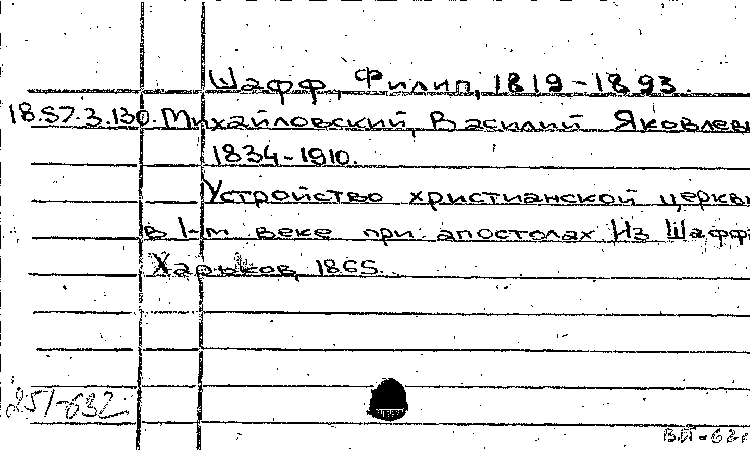 Шафф, Филип, 1819-1893.
18.57.3.130. Михайловский, Василий Яковлев
1834-1910.
Устройство христианской церкви
в 1-м веке при апостолах Из Шаффа
Харьков, 1865.
251-632